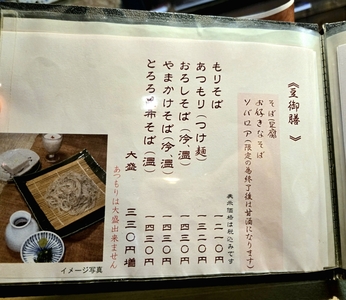 《豆御膳》
そば豆腐
お好きなそば
ソバロア(限定の為終了後は甘酒になります)
表示価格は税込みです
もりそば 一二一〇円
あつもり(つけ麺) 一三二〇円
おろしそば(冷、温) 一四三〇円
やまかけそば(冷、温) 一四三〇円
とろろ昆布そば(温) 一四三〇円
大盛 三三〇円増
あつもりは大盛出来ません
イメージ写真